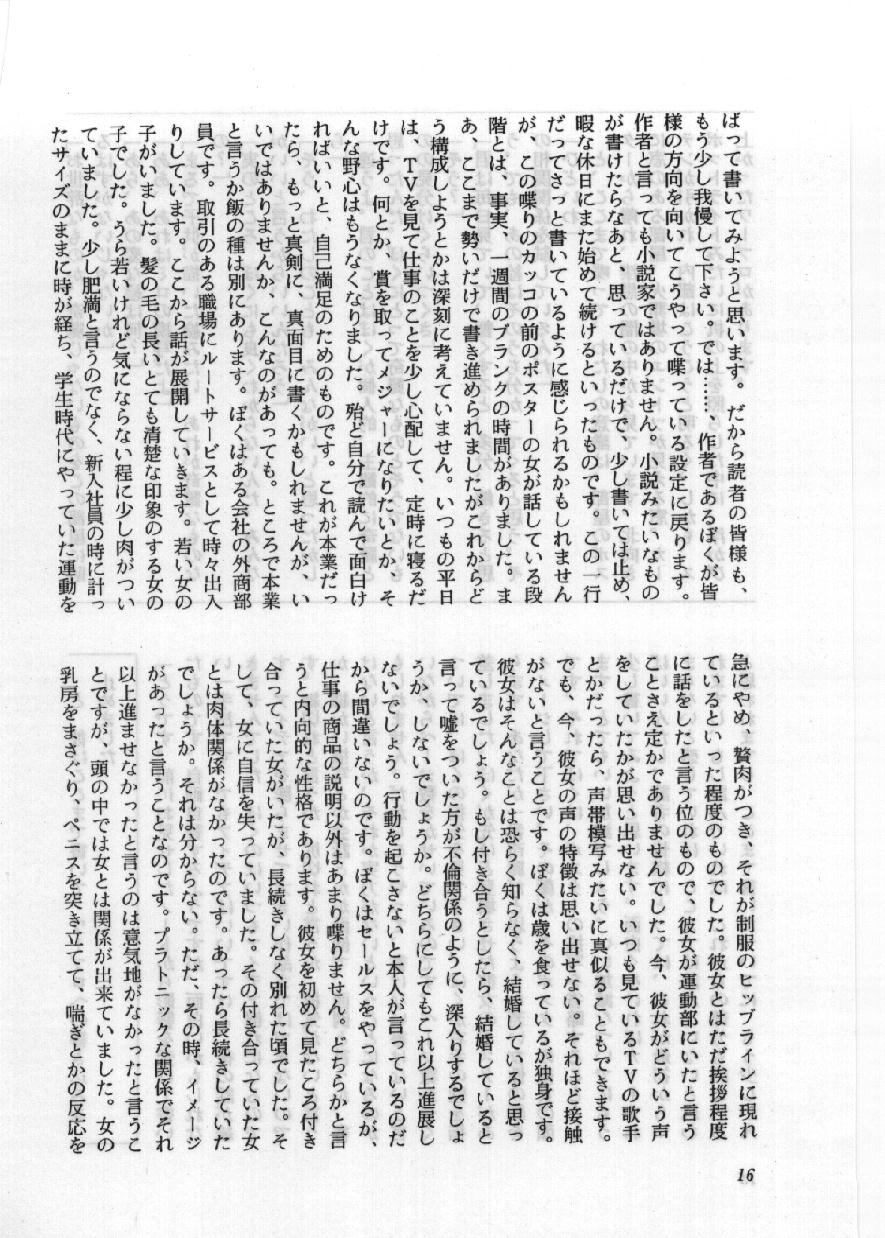 ばって書いてみようと思います。だから読者の皆様も、
もう少し我慢して下さい。では……、作者であるぼくが皆
様の方向を向いてこうやって喋っている設定に戻ります。
作者と言っても小説家ではありません。小説みたいなもの
が書けたらなあと、思っているだけで、少し書いては止め、
暇な休日にまた始めて続けるといったものです。この一行
だってさっと書いているように感じられるかもしれません
が、この喋りのカッコの前のポスターの女が話している段
階とは、事実、一週間のブランクの時間がありました。ま
あ、ここまで勢いだけで書き進められましたがこれからど
う構成しようとかは深刻に考えていません。いつもの平日
は、TVを見て仕事のことを少し心配して、定時に寝るだ
けです。何とか、賞を取ってメジャーになりたいとか、そ
んな野心はもうなくなりました。殆ど自分で読んで面白け
ればいいと、自己満足のためのものです。これが本業だっ
たら、もっと真剣に、真面目に書くかもしれませんが、い
いではありませんか、こんなのがあっても。ところで本業
と言うか飯の種は別にあります。ぼくはある会社の外商部
員です。取引のある職場にルートサービスとして時々出入
りしています。ここから話が展開していきます。若い女の
子がいました。髪の毛の長いとても清楚な印象のする女の
子でした。うら若いけれど気にならない程に少し肉がつい
ていました。少し肥満と言うのでなく、新入社員の時に計っ
たサイズのままに時が経ち、学生時代にやっていた運動を
急にやめ、贅肉がつき、それが制服のヒップラインに現れ
ているといった程度のものでした。彼女とはただ挨拶程度
に話をしたと言う位のもので、彼女が運動部にいたと言う
ことさえ定かでありませんでした。今、彼女がどういう声
をしていたかが思い出せない。いつも見ているTVの歌手
とかだったら、声帯模写みたいに真似ることもできます。
でも、今、彼女の声の特徴は思い出せない。それほど接触
がないと言うことです。ぼくは歳を食っているが独身です。
彼女はそんなことは恐らく知らなく、結婚していると思っ
ているでしょう。もし付き合うとしたら、結婚していると
言って嘘をついた方が不倫関係のように、深入りするでしょ
うか、しないでしょうか。どちらにしてもこれ以上進展し
ないでしょう。行動を起こさないと本人が言っているのだ
から間違いないのです。ぼくはセールスをやっているが、
仕事の商品の説明以外はあまり喋りません。どちらかと言
うと内向的な性格であります。彼女を初めて見たころ付き
合っていた女がいたが、長続きしなく別れた頃でした。そ
して、女に自信を失っていました。その付き合っていた女
とは肉体関係がなかったのです。あったら長続きしていた
でしょうか。それは分からない。ただ、その時、イメージ
があったと言うことなのです。プラトニックな関係でそれ
以上進ませなかったと言うのは意気地がなかったと言うこ
とですが、頭の中では女とは関係が出来ていました。女の
乳房をまさぐり、ペニスを突き立てて、喘ぎとかの反応を
16